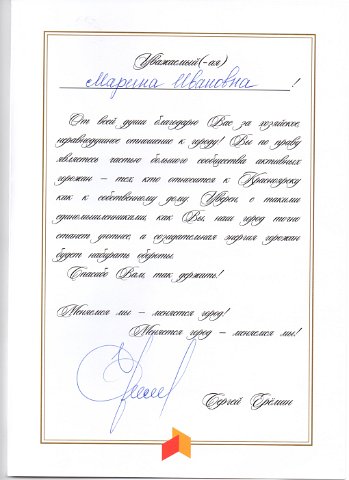 Уважаемый(-ая)
Марина Ивановна !
От всей души благодарю Вас за хозяйское,
неравнодушное отношение к городу! Вы по праву
являетесь частью большого сообщества активных
горожан – тех, кто относится к Красноярску
как к собственному дому. Уверен, с такими
единомышленниками, как Вы, наш город точно
станет уютнее, а созидательная энергия горожан
будет набирать обороты.
Спасибо Вам, так держать!
Меняемся мы – меняется город!
Меняется город – меняемся мы!
Сергей Ерёмин